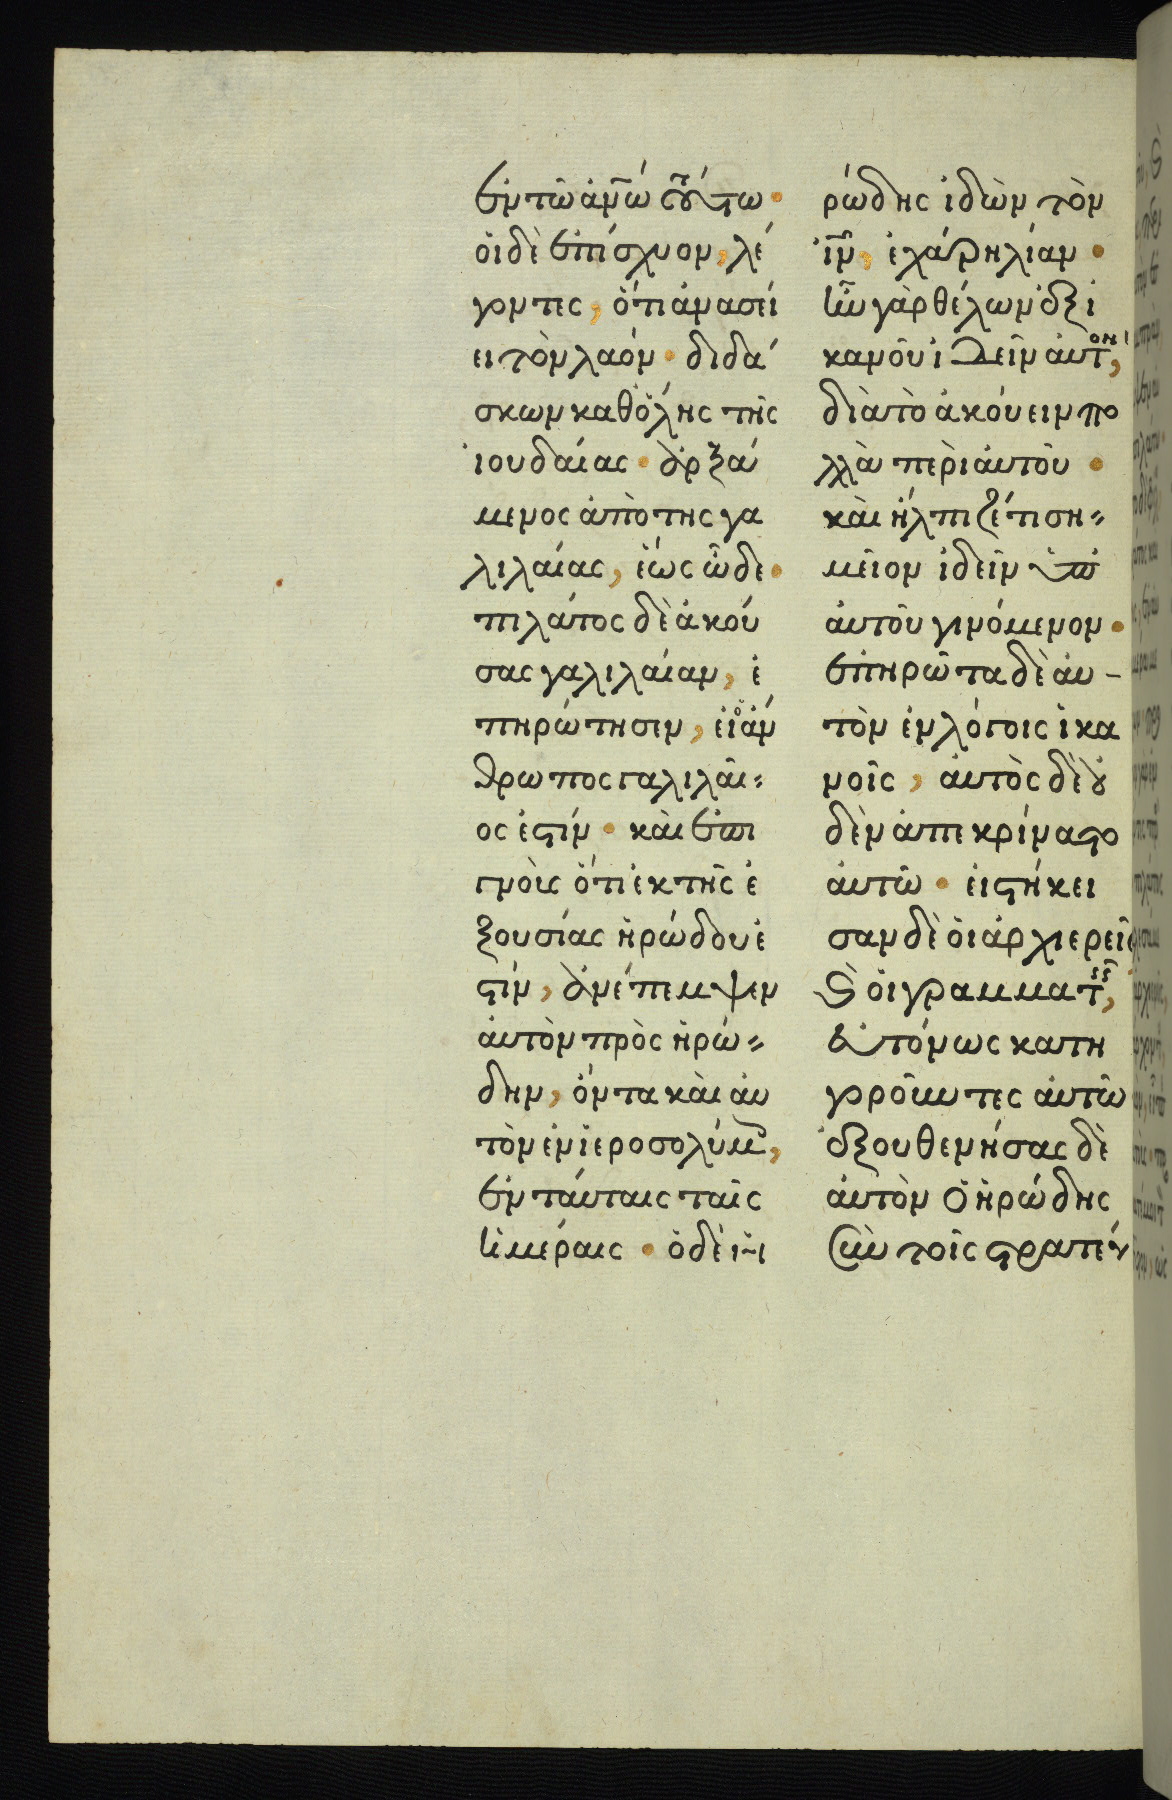 ἐν τῶ ἀν̅ω τούτω·
οἱ δὲ ἐπίσχυον, λέ
γοντες, ὅτι ἀνασεί
ει τὸν λαόν· διδά
σκων καθ ὅλης τῆς
ἰουδαίας· ἀρξά
μενος ἀπὸ της γα
λιλαίας, ἕως ὧδε·
πιλάτος δὲ ἀκού
σας γαλιλαίαν, ἐ
πηρώτησεν, εἰ ὁ ἄν
θρωπος γαλιλαῖ=
ος ἐστίν· καὶ ἐπι
γνοὺς ὅτι ἐκ τῆς ἐ
ξουσίας ἡρώδου ἐ
στίν, ἀνέπεμψεν
ἀυτὸν πρὸς ἡρώ=
δην, ὄντα καὶ ἀυ
τὸν ἐν ἱεροσολύμ,
ἐν ταύταις ταῖς
ἡμέραις· ὁ δὲ ἡ
ρώδης ἰδὼν τὸν
ἰν̅, ἐχάρη λίαν·
ἦν γὰρ θέλων ἐξ ἱ
κανοῦ ἰδεῖν ἀυτον,
διὰ τὸ ἀκούειν πο
λλὰ περὶ ἀυτοῦ·
καὶ ἤλπιζέ τι ση=
μεῖον ἰδεῖν ὑπ
ἀυτοῦ γινόμενον·
ἐπηρῶτα δὲ ἀυ-
τὸν ἐν λόγοις ἱκα
νοῖς, ἀυτὸς δὲ οὐ
δὲν ἀπεκρίνατο
ἀυτῶ· εἱστήκει
σαν δὲ ὁι ἀρχιερεῖς
κὶ ὁι γραμματ,
ἐυτόνως κατη
γοροῦντες ἀυτῶ
ἐξουθενήσας δὲ
ἀυτὸν ὁ ἡρώδης
σὺν τοῖς στρατεύ